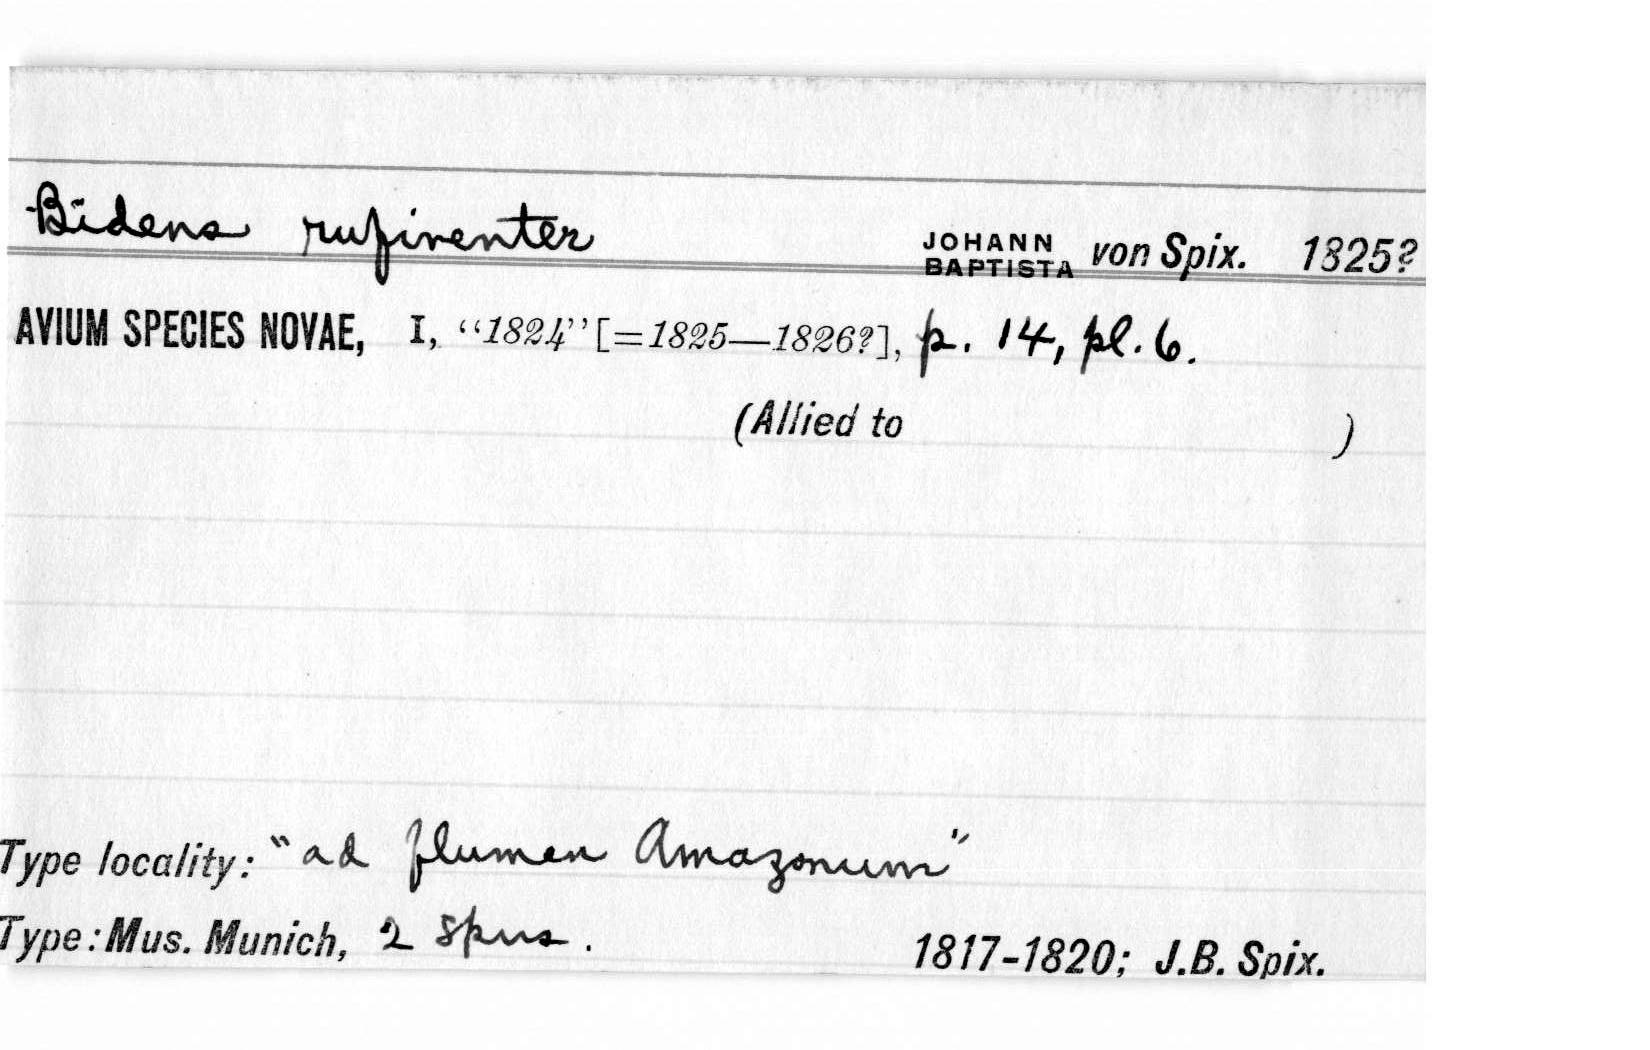 Bidens rufiventer JOHANN BAPTISTA von Spix. 1825?
AVIUM SPECIES NOVAE, I, “1824” [=1825—1826?], p. 14, pl. 6.
(Allied to )
Type locality: "ad flumen Amazonum"
Type: Mus. Munich, 2 spns. 1817-1820; J.B. Spix.